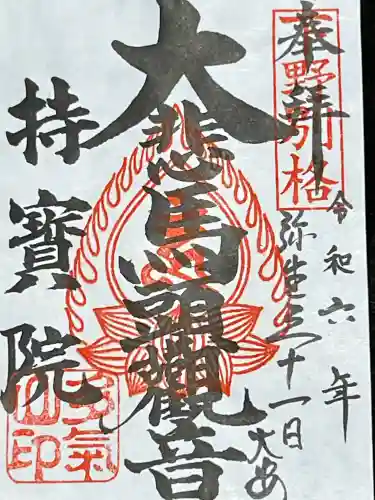 奉拝
下野別格
令和六年
弥生三十一日
大安
大悲馬頭觀音
持寶院
多氣山印